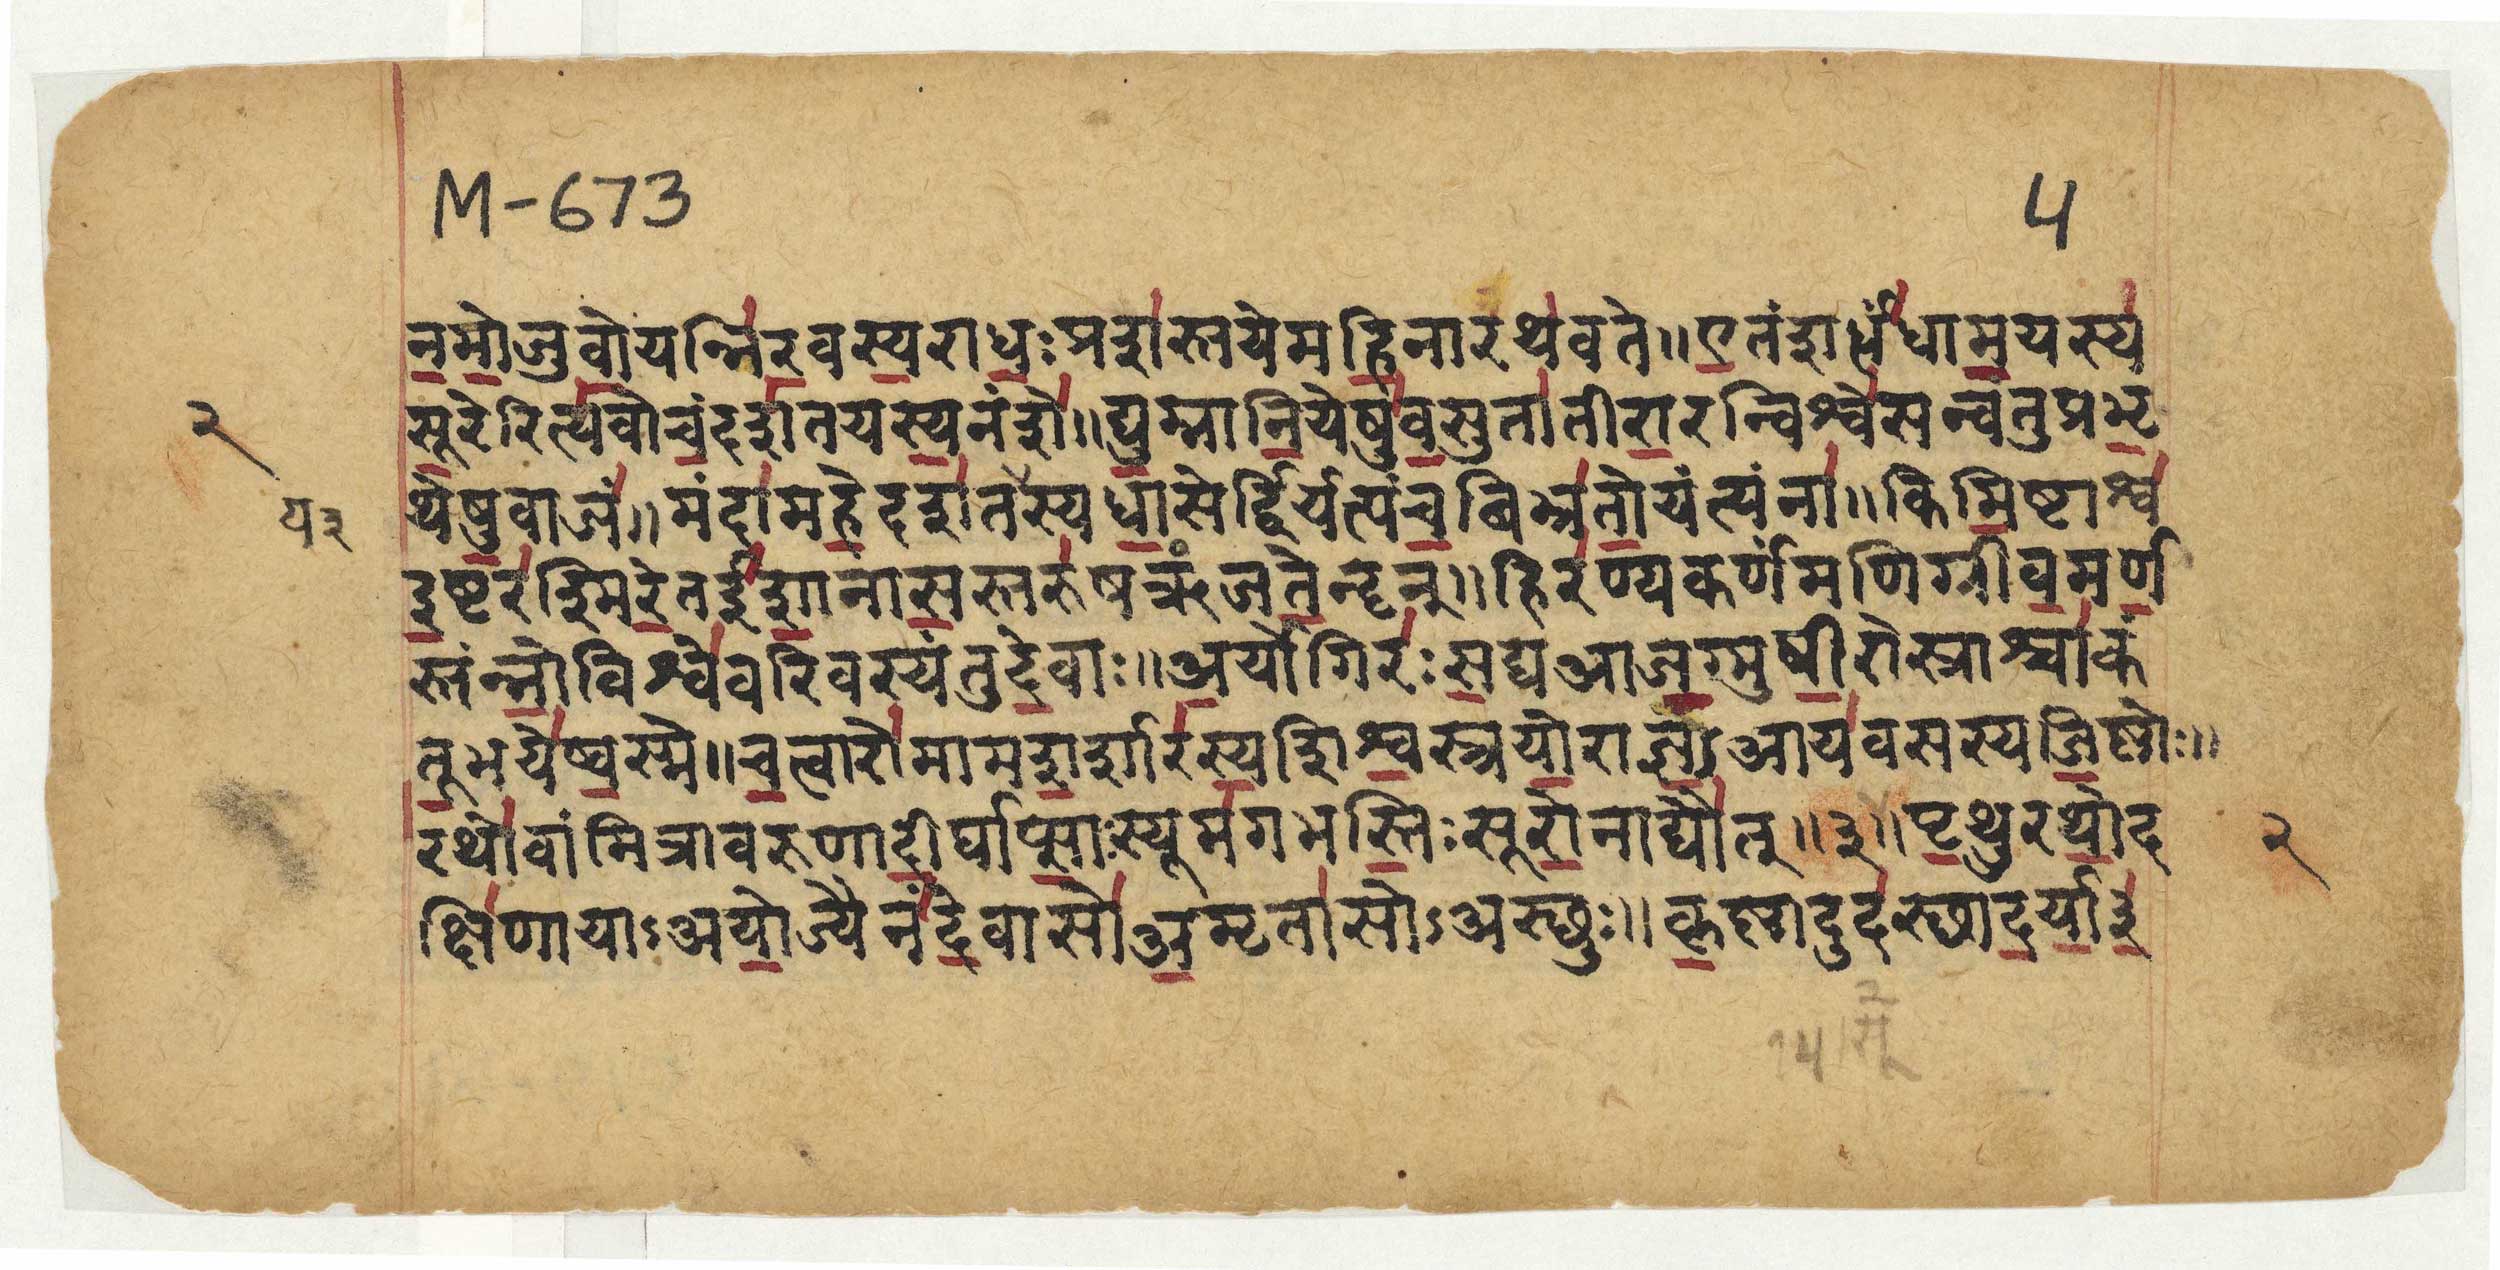 M-673
५
नमोजुवोयन्निरवस्यराधःप्रशस्तयेमहिनारथवते॥एतंशर्धंधामयस्य
सूरेरित्यवोचंदशतयस्यनंशे॥द्युम्नानियेषुवसुतातीरारन्विश्वेसन्वंतुप्रभृ
थेषुवाजं॥मंदामहेदशतयस्यधासेर्द्विर्यत्पंचबिभ्रतोयंत्यंना॥किमिष्टाश्व
इष्टरश्मिरेतईशानासस्तरुषऋंजतेनॄन्॥हिरण्यकर्णंमणिग्रीवमर्ण
स्तंन्नोविश्वेवरिवस्यंतुदेवाः॥अर्योगिरःसद्यआजग्मुषीरोस्राश्चाकं
तूभयेष्वस्मे॥चत्वारोमामशर्शारस्यशिश्वस्त्रयोराज्ञआयवसस्यजिष्णोः॥
रथोवांमित्रावरुणादीर्घाप्साःस्यूमगभस्तिःसूरोनाद्यौत्॥३॥पृथुरथोद
क्षिणायाऽअयोज्यैनंदेवासोअमृतासोऽअस्थुः॥कृष्णादुदस्थादर्या३
२
य३
२
२
१५।सू